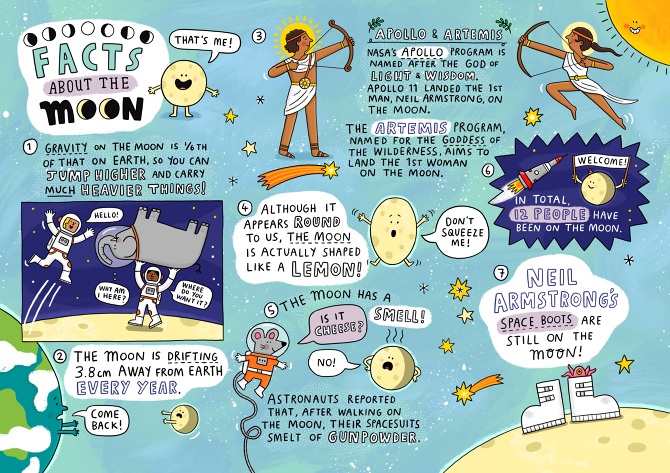 FACTS
ABOUT THE
MOON
THAT'S ME!
1 GRAVITY ON THE MOON IS 1/6TH
OF THAT ON EARTH, SO YOU CAN
JUMP HIGHER AND CARRY
MUCH HEAVIER THINGS!
HELLO!
WHY AM
I HERE?
WHERE
DO YOU
WANT IT?
2 THE MOON IS DRIFTING
3.8cm AWAY FROM EARTH
EVERY YEAR.
COME
BACK!
3
APOLLO & ARTEMIS
NASA'S APOLLO PROGRAM IS
NAMED AFTER THE GOD OF
LIGHT & WISDOM.
APOLLO 11 LANDED THE 1ST
MAN, NEIL ARMSTRONG, ON
THE MOON.
THE ARTEMIS PROGRAM,
NAMED FOR THE GODDESS OF
THE WILDERNESS, AIMS TO
LAND THE 1ST WOMAN
ON THE MOON.
4 ALTHOUGH IT
APPEARS ROUND
TO US, THE MOON
IS ACTUALLY SHAPED
LIKE A LEMON!
DON'T
SQUEEZE
ME!
5 THE MOON HAS A
SMELL!
IS IT
CHEESE?
NO!
ASTRONAUTS REPORTED
THAT, AFTER WALKING ON
THE MOON, THEIR SPACESUITS
SMELT OF GUNPOWDER.
6
WELCOME!
IN TOTAL,
12 PEOPLE HAVE
BEEN ON THE MOON.
7
NEIL
ARMSTRONG'S
SPACE BOOTS ARE
STILL ON THE
MOON!